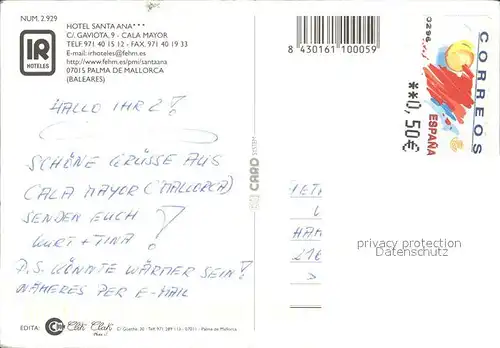 NUM. 2.929
HOTEL SANTA ANA***
C/. GAVIOTA, 9 - CALA MAYOR
TELF. 971 40 15 12 - FAX. 971 40 19 33
E-mail: irhoteles@fehm.es
http://www.fehm.es/pmi/santaana
07015 PALMA DE MALLORCA
(BALEARES)
IR
HOTELES
8 430161 100059
0296
CORREOS
ESPAÑA
**0,50€
HALLO IHR 2!
SCHÖNE GRÜSSE AUS
CALA MAYOR (MALLORCA)
SENDEN EUCH
KURT + TINA!
P.S. KÖNNTE WÄRMER SEIN!
NÄHERES PER E-MAIL
CARD
HAM
216
privacy protection
Datenschutz
EDITA:
Clik Clak
Palma de Mallorca